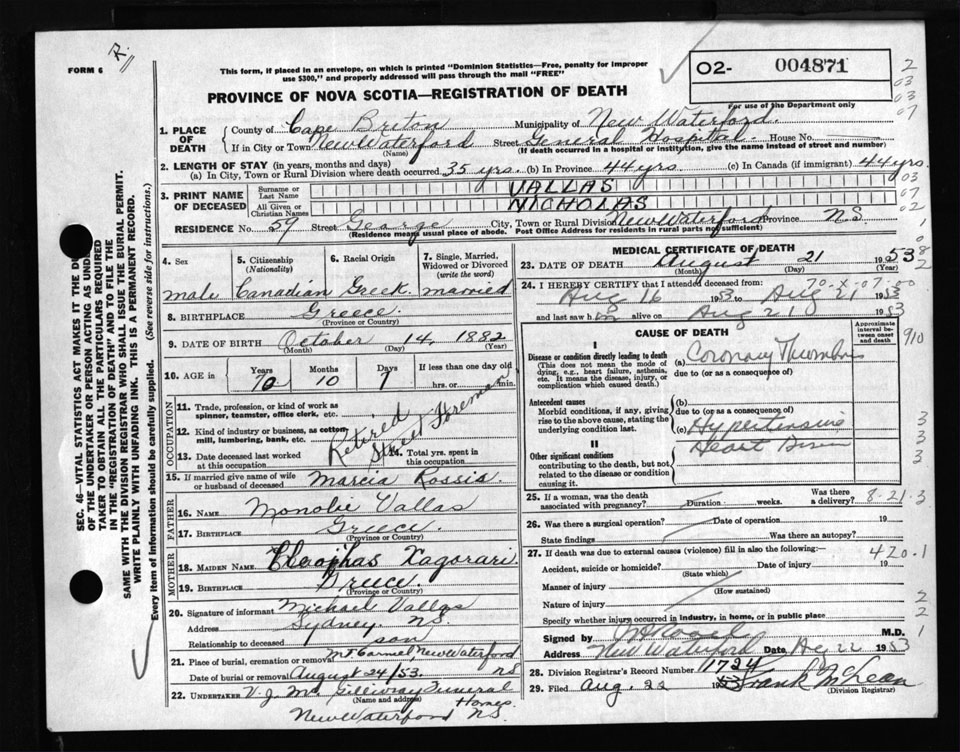 FORM 6
R.
This form, if placed in an envelope, on which is printed "Dominion Statistics—Free, penalty for improper
use $300," and properly addressed will pass through the mail "FREE"
PROVINCE OF NOVA SCOTIA—REGISTRATION OF DEATH
02- 004871
For use of the Department only
2
03
03
07
03
07
02
1
0
8
2
SEC. 46—VITAL STATISTICS ACT MAKES IT THE DU
OF THE UNDERTAKER OR PERSON ACTING AS UND
TAKER TO OBTAIN ALL THE PARTICULARS REQUIRED
IN THE "REGISTRATION OF DEATH" AND TO FILE THE
SAME WITH THE DIVISION REGISTRAR WHO SHALL ISSUE THE BURIAL PERMIT.
WRITE PLAINLY WITH UNFADING INK. THIS IS A PERMANENT RECORD.
Every item of information should be carefully supplied. (See reverse side for instructions.)
1. PLACE OF DEATH
County of Cape Briton Municipality of New Waterford.
If in City or Town New Waterford Street General Hospital. House No.
(Name) (If death occurred in a hospital or institution, give the name instead of street and number)
2. LENGTH OF STAY (in years, months and days)
(a) In City, Town or Rural Division where death occurred 35 yrs. (b) In Province 44 yrs. (c) In Canada (if immigrant) 44 yrs.
3. PRINT NAME OF DECEASED
Surname or Last Name VALLAS
All Given or Christian Names NICHOLAS
RESIDENCE No. 59 Street George City, Town or Rural Division New Waterford Province N.S.
(Residence means usual place of abode. Post Office Address for residents in rural parts not sufficient)
4. Sex male
5. Citizenship (Nationality) Canadian
6. Racial Origin Greek
7. Single, Married, Widowed or Divorced (write the word) married
8. BIRTHPLACE Greece.
(Province or Country)
9. DATE OF BIRTH October 14, 1882
(Month) (Day) (Year)
10. AGE in Years 70 Months 10 Days 7 If less than one day
hrs. or min.
OCCUPATION
11. Trade, profession, or kind of work as
spinner, teamster, office clerk, etc.
12. Kind of industry or business, as cotton
mill, lumbering, bank, etc.
Retired
13. Date deceased last worked
at this occupation
14. Total yrs. spent in
this occupation
15. If married give name of wife
or husband of deceased Marcia Rossis.
FATHER
16. NAME Monolie Vallas
17. BIRTHPLACE Greece.
(Province or Country)
MOTHER
18. MAIDEN NAME Xagorari.
19. BIRTHPLACE Greece.
(Province or Country)
20. Signature of informant Michael Vallas
Address Sydney. N.S.
Relationship to deceased son
21. Place of burial, cremation or removal Mt. Carmel, New Waterford
Date of burial or removal August 24/53. NS
22. UNDERTAKER V. J. Mc Gillivray Funeral
(Name and address) Homes.
New Waterford N.S.
MEDICAL CERTIFICATE OF DEATH
23. DATE OF DEATH August 21 1953
(Month) (Day) (Year)
70-X-07-00
24. I HEREBY CERTIFY that I attended deceased from:
Aug 16 1953 to Aug 21 1953
and last saw him alive on Aug 21 1953
CAUSE OF DEATH
Approximate
interval between
onset and
death
910
I
Disease or condition directly leading to death
(This does not mean the mode of
dying, e.g. heart failure, asthenia,
etc. It means the disease, injury, or
complication which caused death.)
(a) Coronary
due to (or as a consequence of)
Antecedent causes
Morbid conditions, if any, giving
rise to the above cause, stating the
underlying condition last.
(b)
due to (or as a consequence of)
(c) Hypertensive
Heart
3
3
3
II
Other significant conditions
contributing to the death, but not
related to the disease or condition
causing it.
25. If a woman, was the death
associated with pregnancy? Duration weeks. Was there
a delivery? 8-21-3
26. Was there a surgical operation? Date of operation 19
State findings Was there an autopsy?
27. If death was due to external causes (violence) fill in also the following:— 420-1
Accident, suicide or homicide? Date of injury 19
(State which)
Manner of injury
(How sustained)
Nature of injury 2
Specify whether injury occurred in industry, in home, or in public place 2
Signed by M.D. 1
Address New Waterford Date, Aug 22 1953
28. Division Registrar's Record Number 11724
29. Filed Aug. 22 1953 Frank McLean
(Division Registrar)